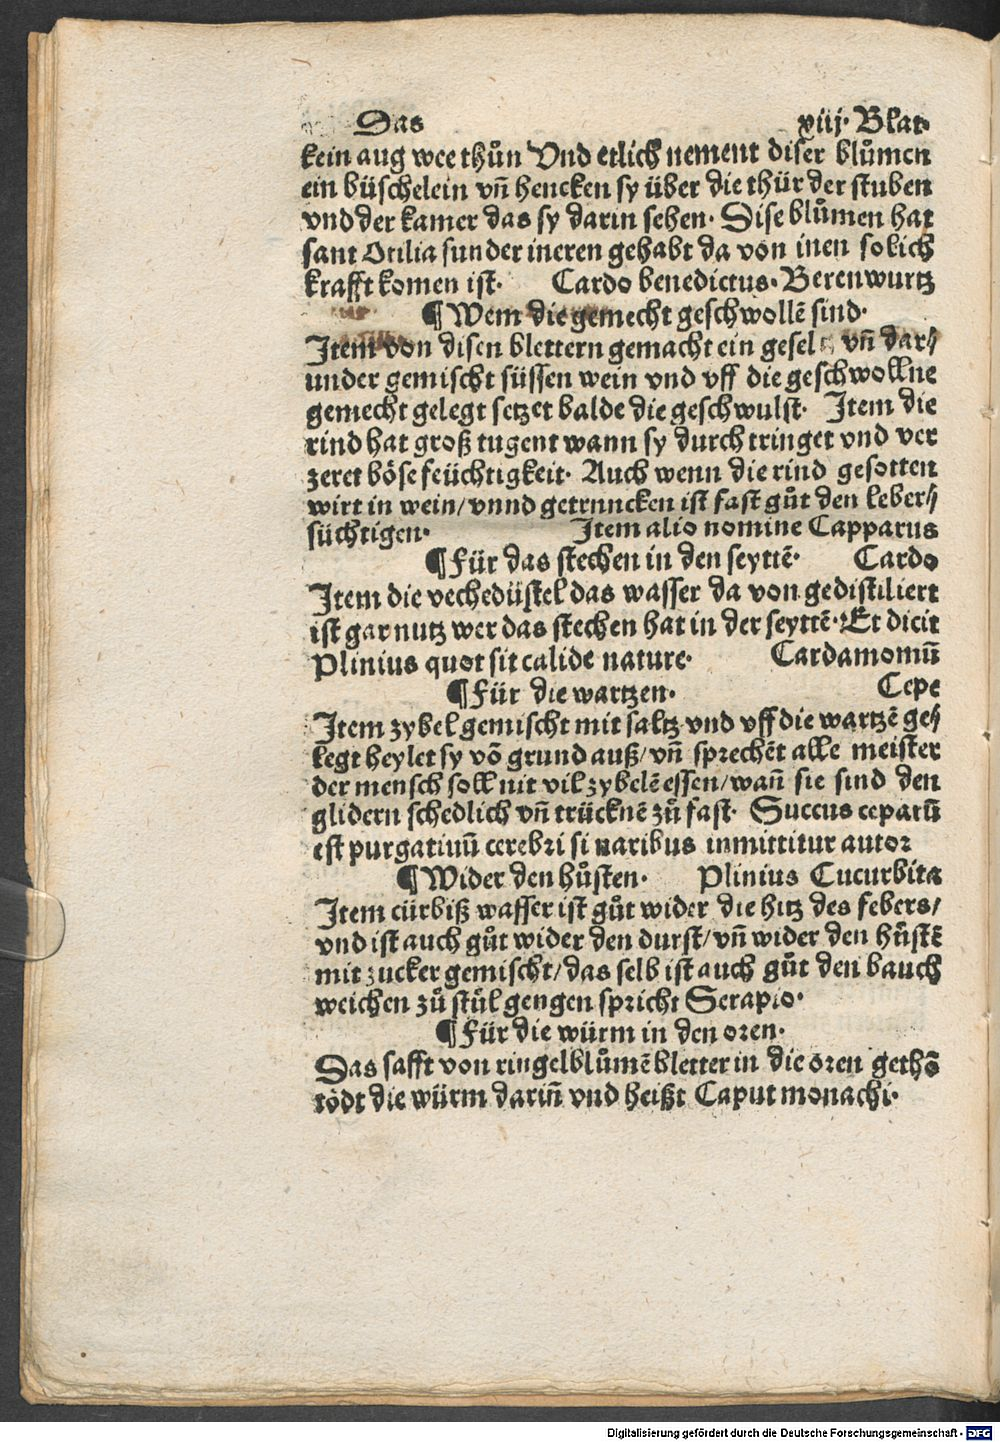 Das xiij· Blat·
kein aug wee thůn Vnd etlich nement diser blůmen
ein büschelein vn̄ hencken sy über die thür der stuben
vnd der kamer das sy darin sehen· Dise blůmen hat
sant Otilia sunder ineren gehabt da von inen solich
krafft komen ist· Cardo benedictus· Berenwurtz
¶ Wem die gemecht geschwollē sind·
Item von disen blettern gemacht ein vn̄ dar⸗
under gemischt süssen wein vnd vff die geschwollne
gemecht gelegt setzet balde die geschwulst· Item die
rind hat groß tugent wann sy durch tringet vnd ver
zeret böse feüchtigkeit· Auch wenn die rind gesotten
wirt in wein/ vnnd getruncken ist fast gůt den leber⸗
süchtigen· Item alio nomine Capparus
¶ Für das stechen in den seyttē· Cardo
Item die vechedüstel das wasser da von gedistiliert
ist gar nutz wer das stechen hat in der seyttē· Et dicit
Plinius quot sit calide nature· Cardamomū
¶ Für die wartzen· Cepe
Item zybel gemischt mit saltz vnd vff die wartzē ge⸗
legt heylet sy vō grund auß/ vn̄ sprechēt alle meister
der mensch soll nit vil zybelē essen/ wan̄ sie sind den
glidern schedlich vn̄ trücknē zů fast· Succus ceparū
est purgatiuū cerebri si naribus inmittitur autor
¶ Wider den hůsten· Plinius Cucurbita
Item cürbiß wasser ist gůt wider die hitz des febers/
vnd ist auch gůt wider den durst/ vn̄ wider den hůstē
mit zucker gemischt/ das selb ist auch gůt den bauch
weichen zů stůl gengen spricht Serapio·
¶ Für die würm in den oren·
Das safft von ringelblůmē bletter in die oren gethō
tödt die würm darin̄ vnd heißt Caput monachi·
Digitalisierung gefördert durch die Deutsche Forschungsgemeinschaft - DFG